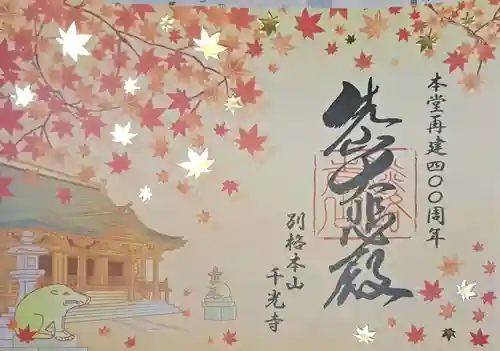 本堂再建四〇〇周年
先山大悲殿
別格本山
千光寺